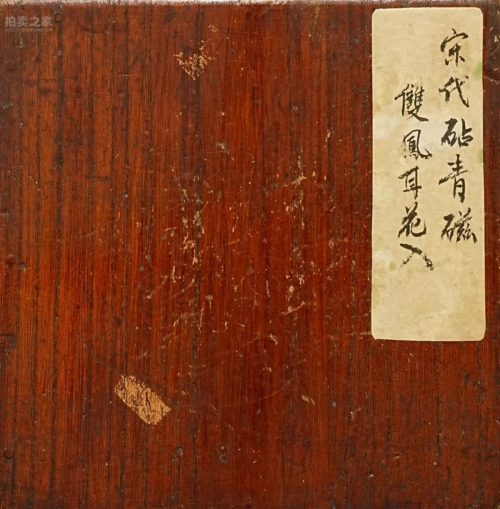 宋代砧青磁
雙鳳耳花入
拍卖之家